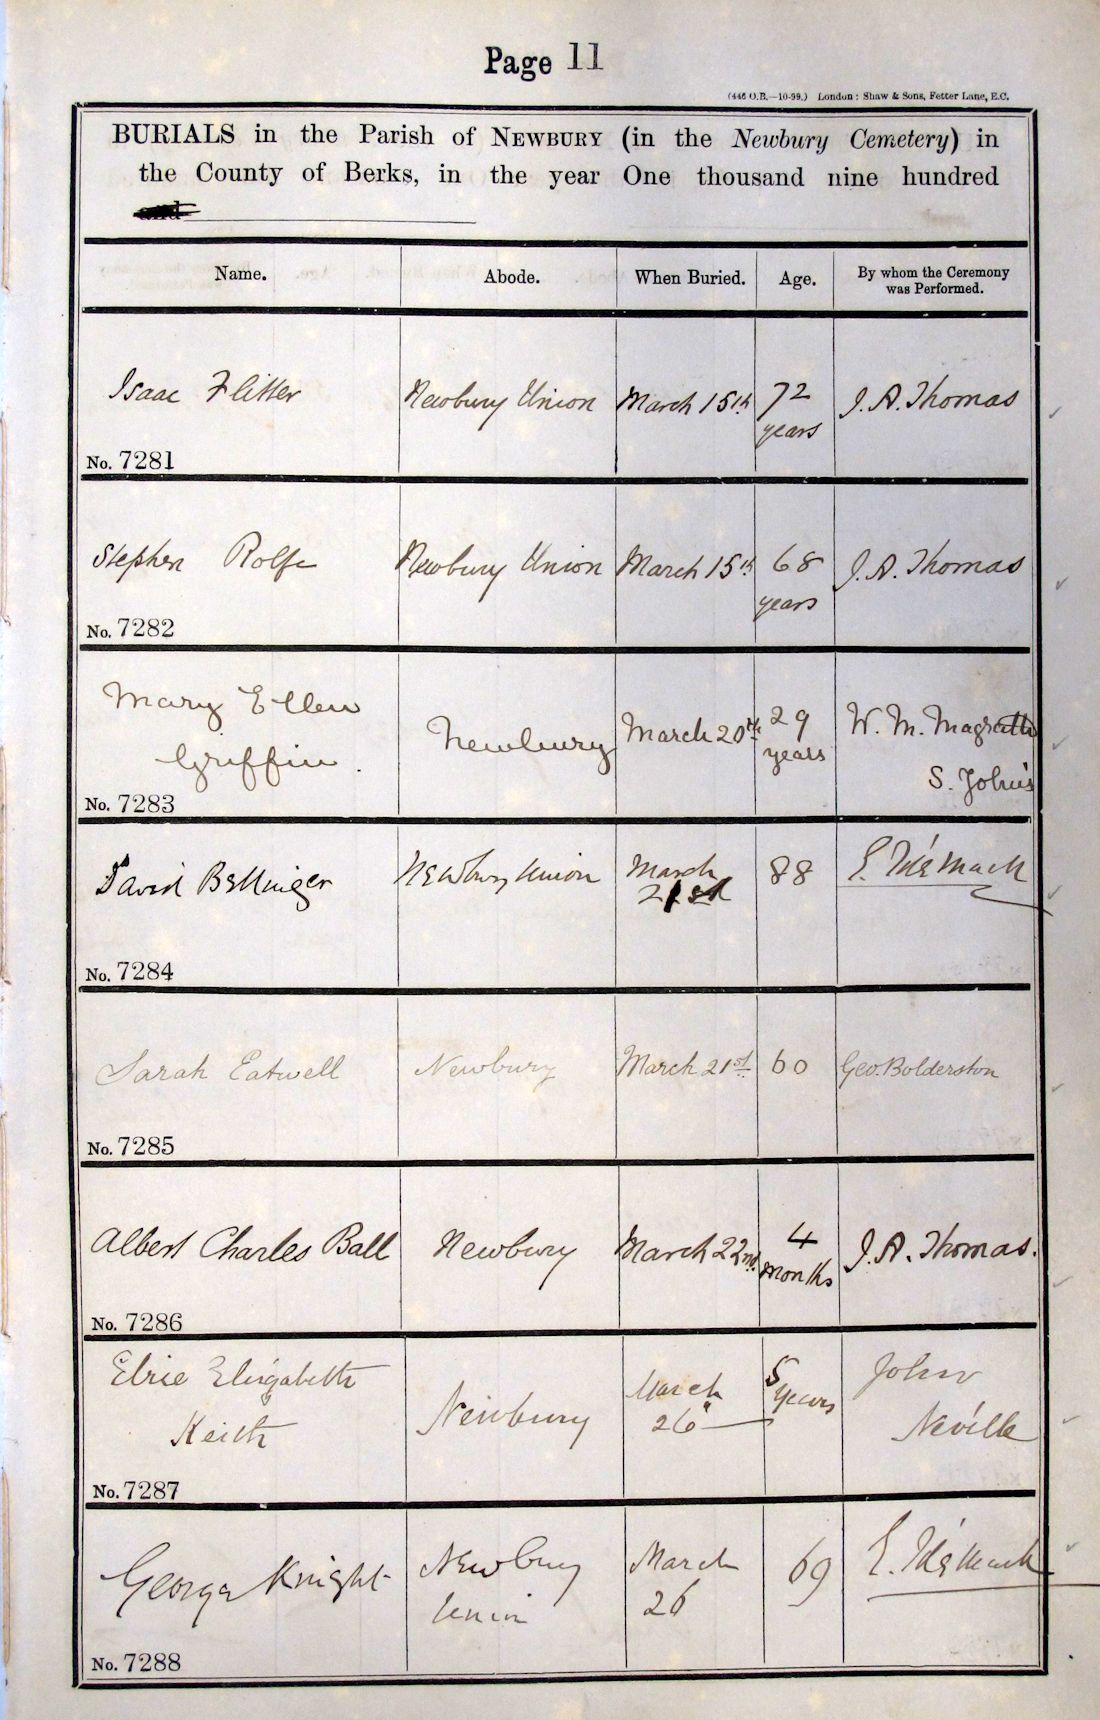 Page 11
(446 O.B.—10-99.) London: Shaw & Sons, Fetter Lane, E.C.
BURIALS in the Parish of NEWBURY (in the Newbury Cemetery) in
the County of Berks, in the year One thousand nine hundred
and
Name. Abode. When Buried. Age. By whom the Ceremony
was Performed.
Isaac Flitter Newbury Union March 15th 72 J. A. Thomas
years
No. 7281
Stephen Rolfe Newbury Union March 15th 68 J. A. Thomas
years
No. 7282
Mary Ellen Newbury March 20th 29 W. M. Magrath
Griffin years S. John's
No. 7283
David Bellinger Newbury Union March 88
21st
No. 7284
Sarah Eatwell Newbury March 21st 60 Geo. Bolderston
No. 7285
Albert Charles Ball Newbury March 22nd 4 J. A. Thomas.
months
No. 7286
Elsie Elizabeth Newbury March 5 John
Keith 26 years Neville
No. 7287
George Knight Newbury March 69
Union 26
No. 7288